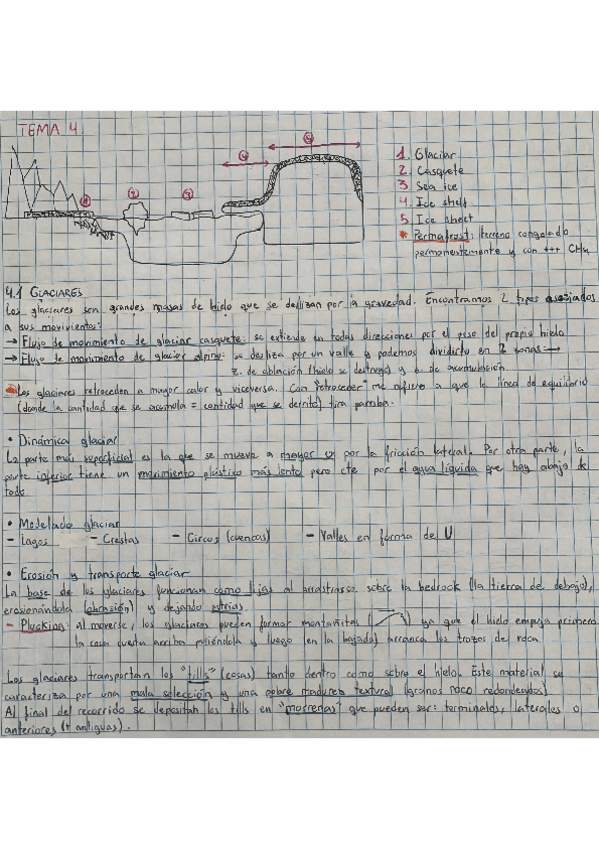 TEMA 4.
1. Glaciar
2. Casquete
3. Sea ice
4. Ice shelf
5. Ice sheet
* Permafrost: terreno congelado
permanentemente y con +++ CH4
4.1 GLACIARES
Los glaciares son grandes masas de hielo que se deslizan por la gravedad. Encontramos 2 tipos asociados
a sus movimientos:
→ Flujo de movimiento de glaciar casquete: se extiende en todas direcciones por el peso del propio hielo
→ Flujo de movimiento de glaciar alpino: se desliza por un valle y podemos dividirlo en 2 zonas:→
z. de ablación (hielo se destruye) y z. de acumulación
Los glaciares retroceden a mayor calor y viceversa. Con "retroceder" me refiero a que la línea de equilibrio
(donde la cantidad que se acumula = cantidad que se derrite) tira parriba.
• Dinámica glaciar
La parte más superficial es la que se mueve a mayor por la fricción lateral. Por otra parte, la
parte inferior tiene un movimiento plástico más lento pero cte por el agua líquida que hay abajo de
todo
• Modelado glaciar
- Lagos - Crestas - Circos (cuencas) - Valles en forma de U
• Erosión y transporte glaciar
La base de los glaciares funcionan como lijas al arrastrarse sobre la bedrock (la tierra de debajo),
erosionándola (abrasión) y dejando estrías.
- Plucking: al moverse, los glaciares pueden formar montañitas ( ) ya que el hielo empuja primero
la cara cuesta arriba puliéndola y luego (en la bajada) arranca los trozos de roca
Los glaciares transportan los "tills" (cosas) tanto dentro como sobre el hielo. Este material se
caracteriza por una mala selección y una pobre madurez textural (granos poco redondeados)
Al final del recorrido se depositan los tills en "morrenas" que pueden ser: terminales, laterales o
anteriores (+ antiguas).